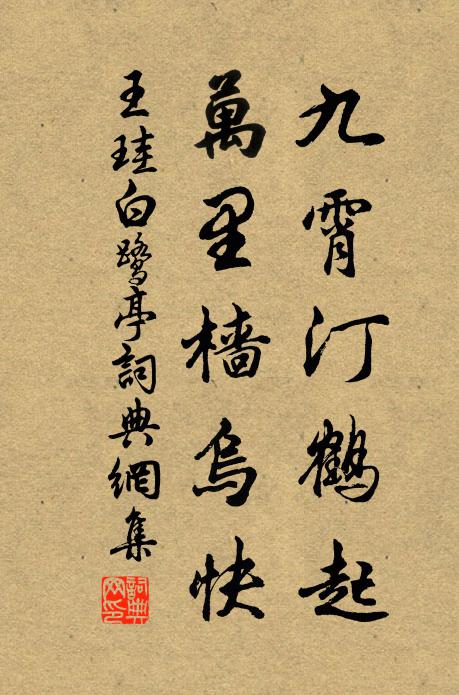 九霄汀鶴起
萬里檣烏快
王珪白鷺亭詞典網集
詞典网印